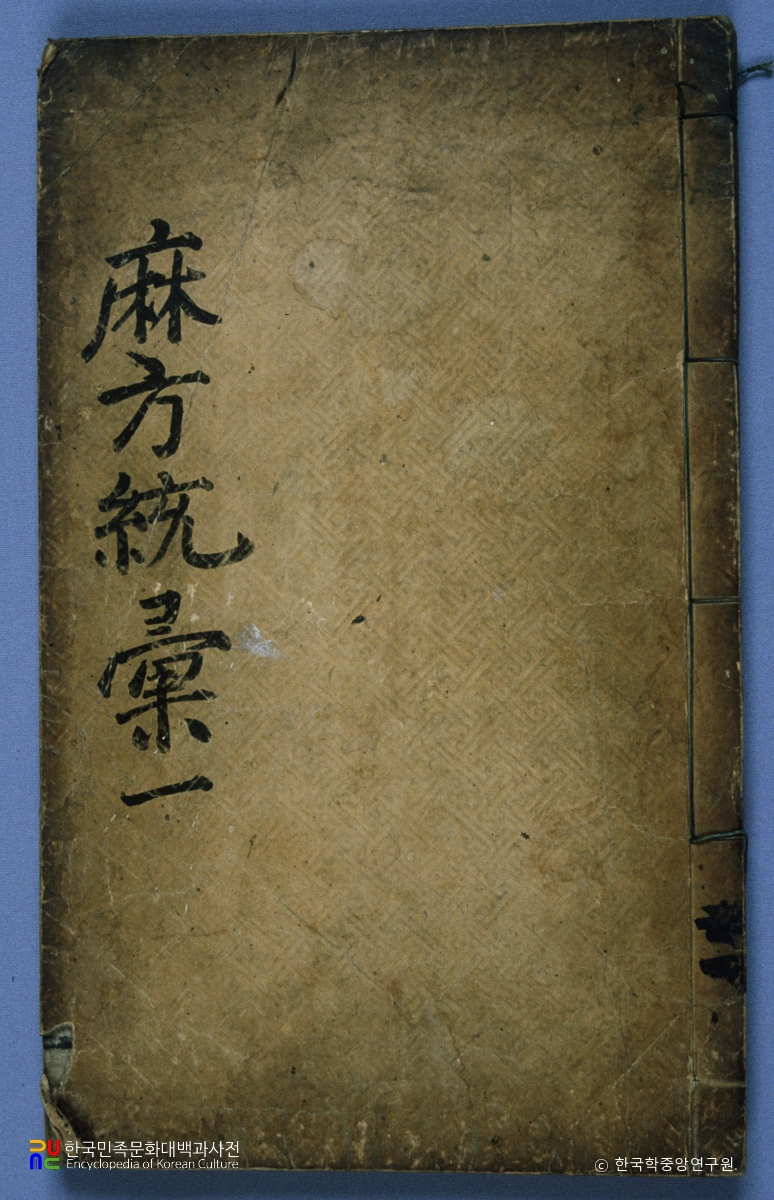 麻方統彙一
한국민족문화대백과사전
Encyclopedia of Korean Culture
© 한국학중앙연구원.